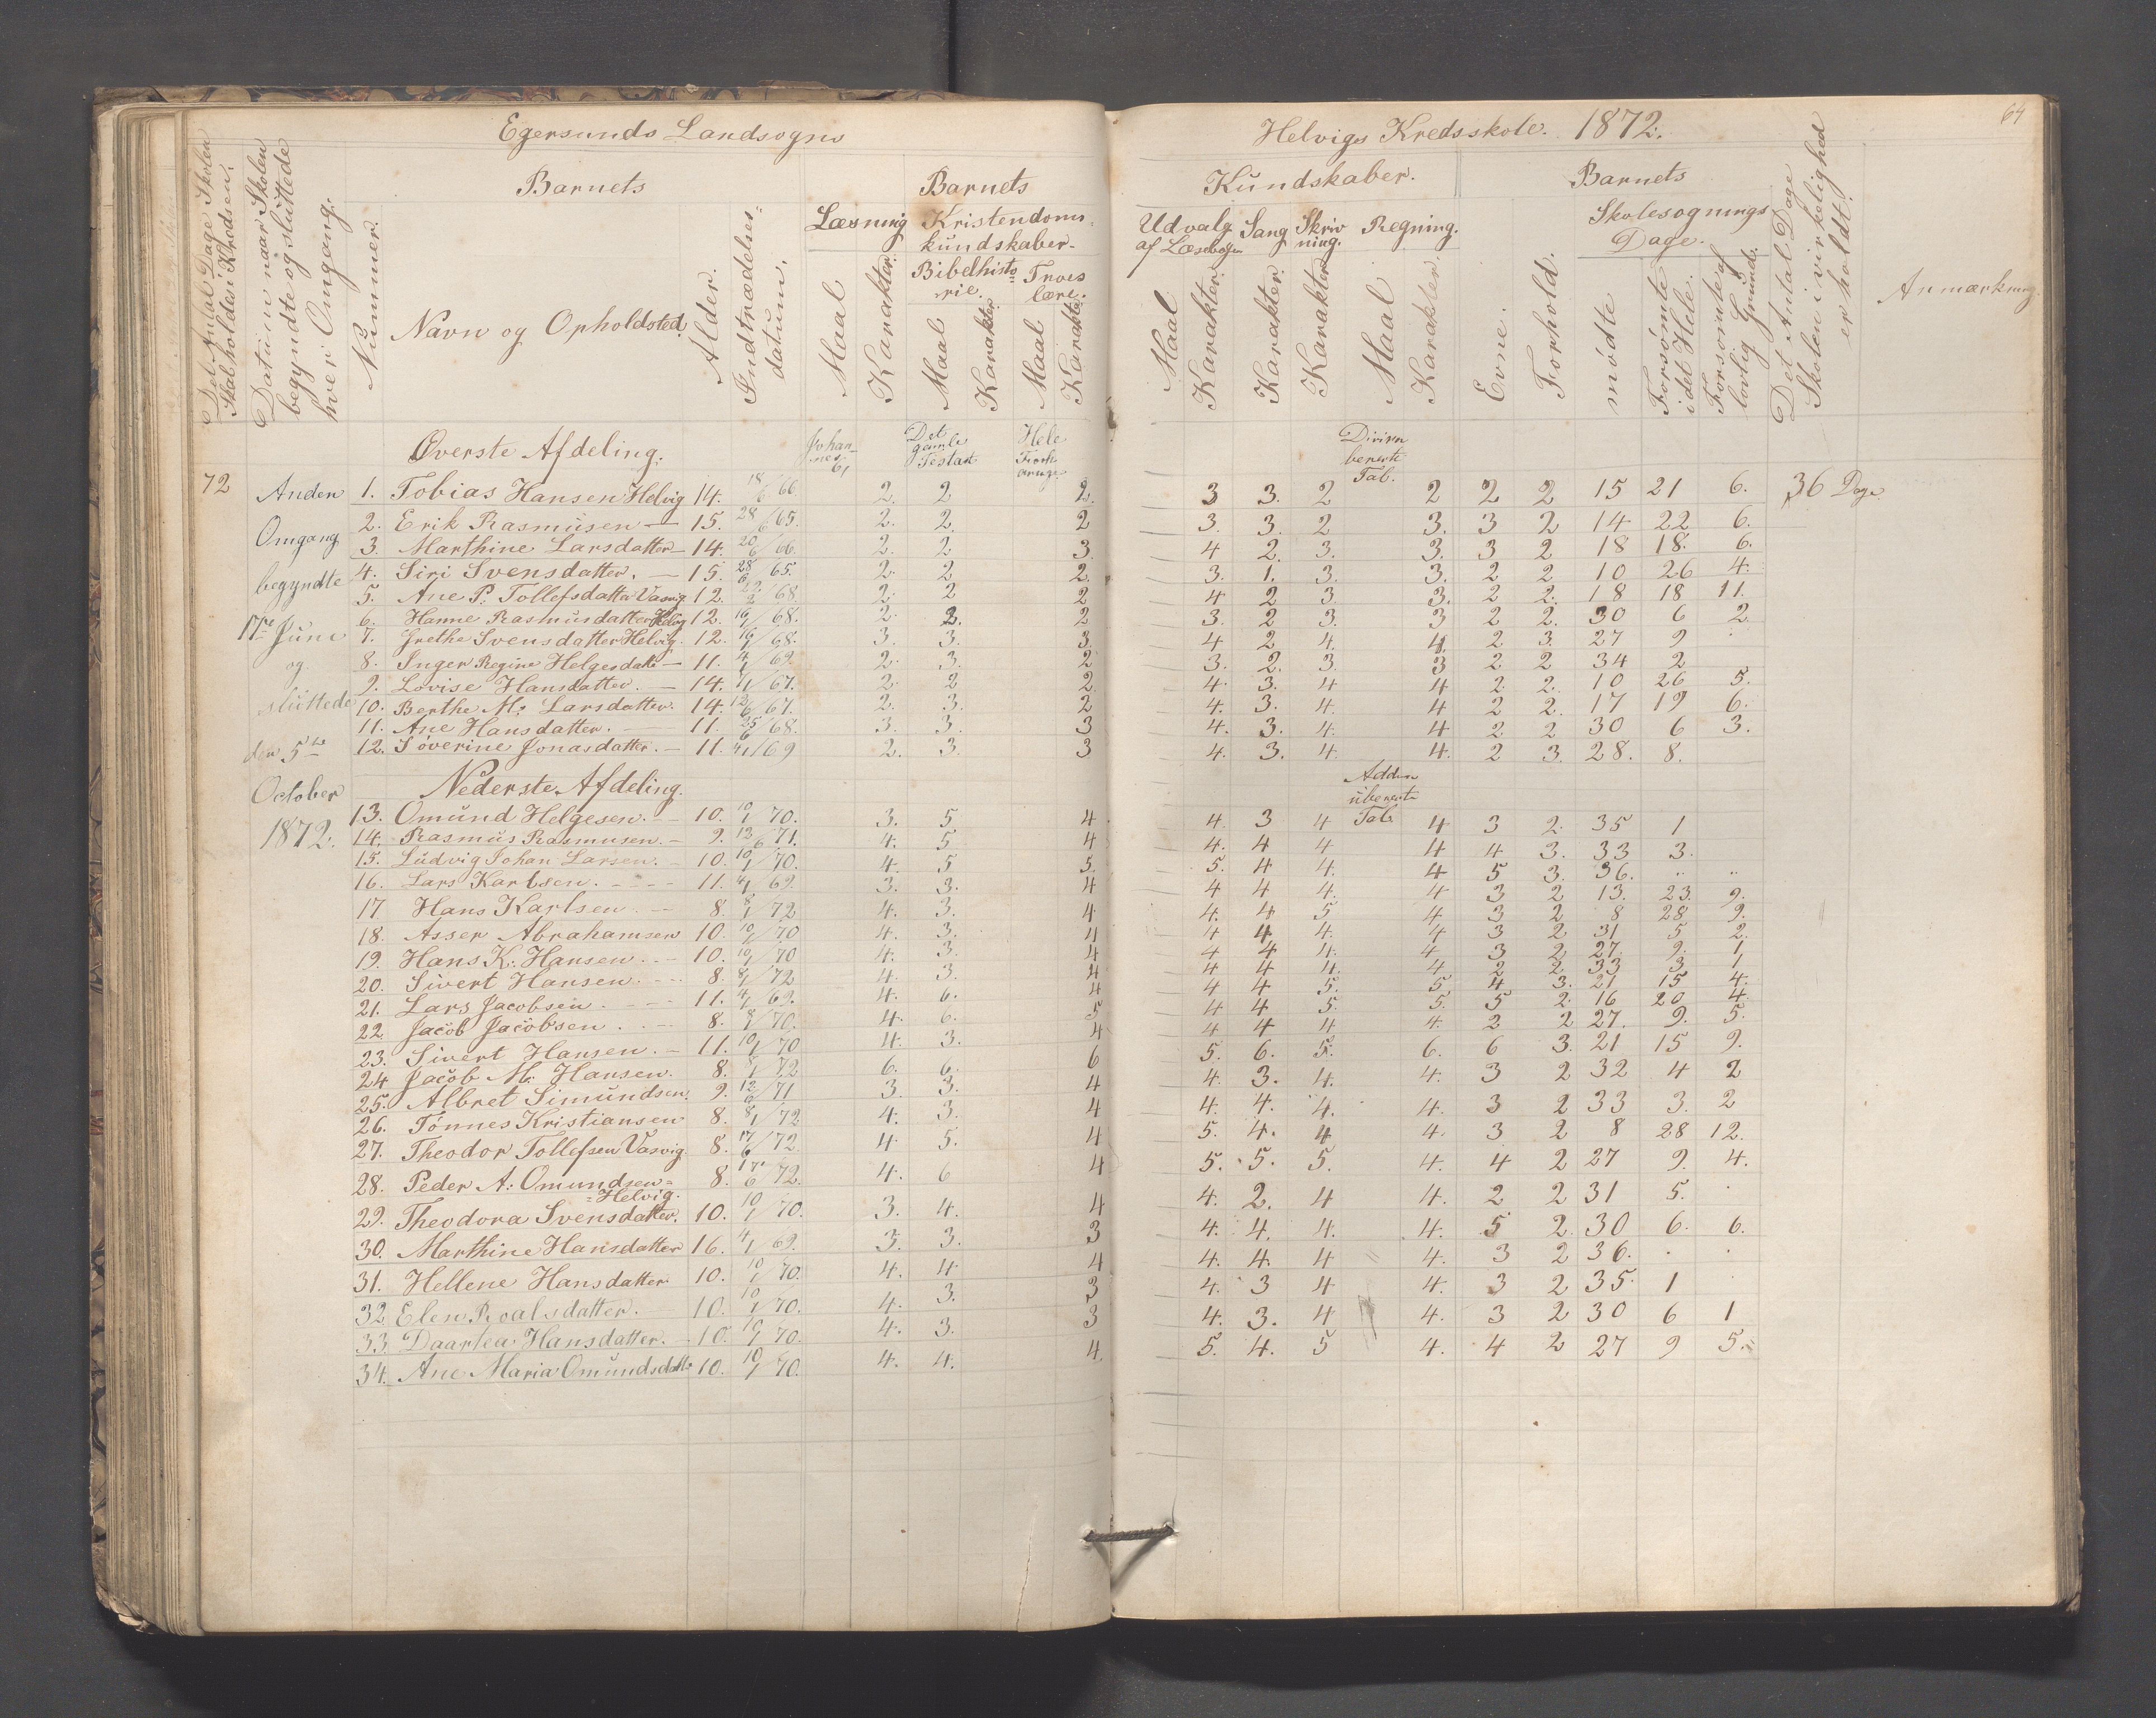 Egersunds Landsogns
Helvigs Kredsskole. 1872.
64
Det Antal Dage Skolen
Skal holdes i Kredsen.
Datum naar Skolen
begyndte og sluttede
hver Omgang.
Nummer.
Barnets
Navn og Opholdsted
Alder.
Indtrædelses-
datum.
Barnets
Læsning
Maal
Karakter.
Kristendoms-
kundskaber
Bibelhisto-
rie.
Maal
Karakter
Troes
lære.
Maal
Karakter
Kundskaber.
Udvalg
af Læsebogen
Maal
Karakter.
Sang
Karakter.
Skriv
ning.
Karakter
Regning.
Maal
Karakter.
Barnets
Evne.
Forhold.
Skolesøgnings
Dage.
mødte
Forsømte
i det Hele.
Forsømte af
lovlig Grunde.
Det Antal Dage
Skolen i virkelighed
er holdt.
Anmærkning.
Øverste Afdeling.
Johan-
nes
Det
gamle
Testat
Hele
Divisn
Tab.
72
Anden
Omgang
begyndte
17de Juni
og
sluttede
den 5te
October
1872.
1. Tobias Hansen Helvig 14. 18/6 66 2. 2 2. 3 3. 2 2 2 2 15 21 6. 36 Dage
2. Erik Rasmusen — 15. 28/6 65. 2. 2. 2 3. 3. 2 3. 3 2 14 22 6.
3. Marthine Larsdatter — 14. 20/6 66. 2. 2 3. 4 2. 3. 3. 3 2 18 18. 6.
4. Siri Svensdatter. — 15. 28/6 65. 2. 2 2. 3. 1. 3. 3. 2 2 10 26 4.
5. Ane P. Tollefsdatter Vasvig 12. 22/2 68 2. 2 2 4 2 3 3. 2 2. 18 18 11.
6. Hanne Rasmusdatter Helvig 12. 16/1 68. 2. 2. 2 3. 2 3. 3 2 2. 30 6 2
7. Grethe Svensdatter Helvig. 12. 16/1 68. 3. 3. 3. 4 2 4. 4. 2 3. 27 9
8. Inger Regine Helgesdatt — 11. 4/1 69. 2. 3. 2 3. 2. 3. 3 2 2 34 2
9. Lovise Hansdatter. — 14. 4/1 67. 2. 2 2. 4. 3. 4 4 2 2. 10 26 5.
10. Berthe M. Larsdatter. 14. 12/6 67. 2. 3. 2 4. 3. 4. 4 2 2. 17 19 6.
11. Ane Hansdatter. — 11. 25/6 68. 3. 3. 3 4. 3. 4. 4 2 2 30 6 3.
12. Søverine Jonasdatter. — 11. 4/1 69 2. 3. 3 4. 3. 4. 4. 2 3. 28. 8.
Nederste Afdeling.
Tab.
13. Omund Helgesen. — 10. 10/1 70. 3. 5 4. 4. 3 4 4 3 2. 35 1
14. Rasmus Rasmusen. — 9. 12/6 71. 4. 5 4 4. 4 4 4 4 3. 33 3.
15. Ludvig Johan Larsen. — 10. 10/1 70. 4. 5 5. 5. 4 4. 4 5 3. 36. .. ..
16. Lars Karlsen. — 11. 4/1 69. 3. 3. 4 4 4 4. 4 3 2 13. 23. 9.
17 Hans Karlsen. — 8. 8/1 72 4. 3. 4 4. 4 5 4 3 2 8 28 9.
18. Asser Abrahamsen 10. 10/1 70 4. 3. 4 4 4 4. 4 3 2 31 5 2.
19. Hans K. Hansen. — 10. 10/1 70 4. 3. 4 4 4 4. 4 3 2. 27 9. 1
20. Sivert Hansen. — 8. 8/1 72 4. 3. 4 4 4 4. 4 2 2 33 3 1
21. Lars Jacobsen. — 11. 4/1 69. 4. 6. 4 4 4 5. 5. 4 3. 21 15 4.
22. Jacob Jacobsen. — 8. 8/1 70. 4. 6. 5 4 4 5. 5. 5 2. 16 20 4.
23. Sivert Hansen. — 11. 10/1 70 4. 3. 4 4 4 4 4. 2 2 27. 9. 5.
24 Jacob M. Hansen. 8. 8/1 72 6. 6. 6 5. 6. 5. 6. 6 3. 21 15 9.
25. Albret Simundsen. 9. 12/6 71 3. 3. 4 4. 3. 4. 4. 3 2 32 4 2
26. Tønnes Kristiansen 8. 8/1 72 4. 3. 4 4. 4. 4. 4. 3 2 33 3. 2
27. Theodor Tollefsen Vasvig. 8. 17/6 72. 4 5. 4 5. 4. 4 4. 3 2 8 28 12.
28. Peder A. Omundsen-
-Helvig. 8. 17/6 72. 4. 6 4 5. 5. 5. 4. 4 2 27 9. 4.
29. Theodora Svensdatter. 10. 10/1 70. 3. 4. 4 4. 2. 4 4. 2 2 31 5.
30. Marthine Hansdatter 16. 4/1 69. 3. 3. 3 4. 4. 4. 4. 5 2. 30 6. 6.
31. Hellene Hansdatter 10. 10/1 70. 4. 4 4 4. 4. 4 4. 3 2 36. . .
32 Elen Roalsdatter. 10. 10/1 70. 4. 3. 3 4. 3 4 4. 3 2 35. 1
33. Daartea Hansdatter. — 10. 10/1 70. 4. 3. 3 4. 3. 4 4. 3 2 30 6 1
34. Ane Maria Omundsdatt 10. 10/1 70. 4. 4. 4. 5. 4. 5 4. 4 2 27 9 5.